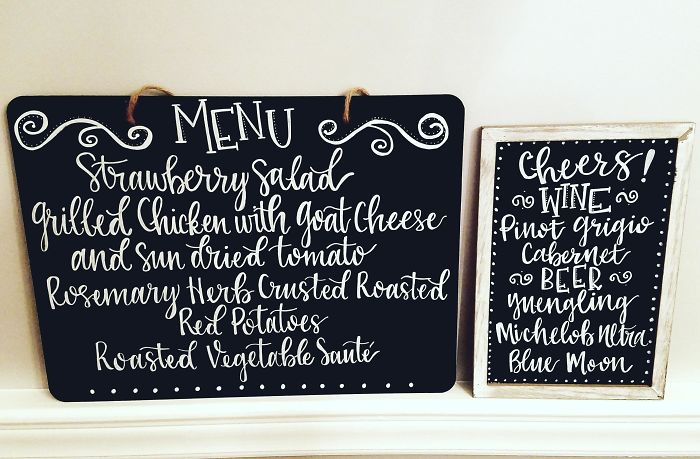 MENU
Strawberry Salad
Grilled Chicken with Goat Cheese
and sun dried tomato
Rosemary Herb Crusted Roasted
Red Potatoes
Roasted Vegetable Sauté
Cheers!
WINE
Pinot Grigio
Cabernet
BEER
Yuengling
Michelob Ultra
Blue Moon